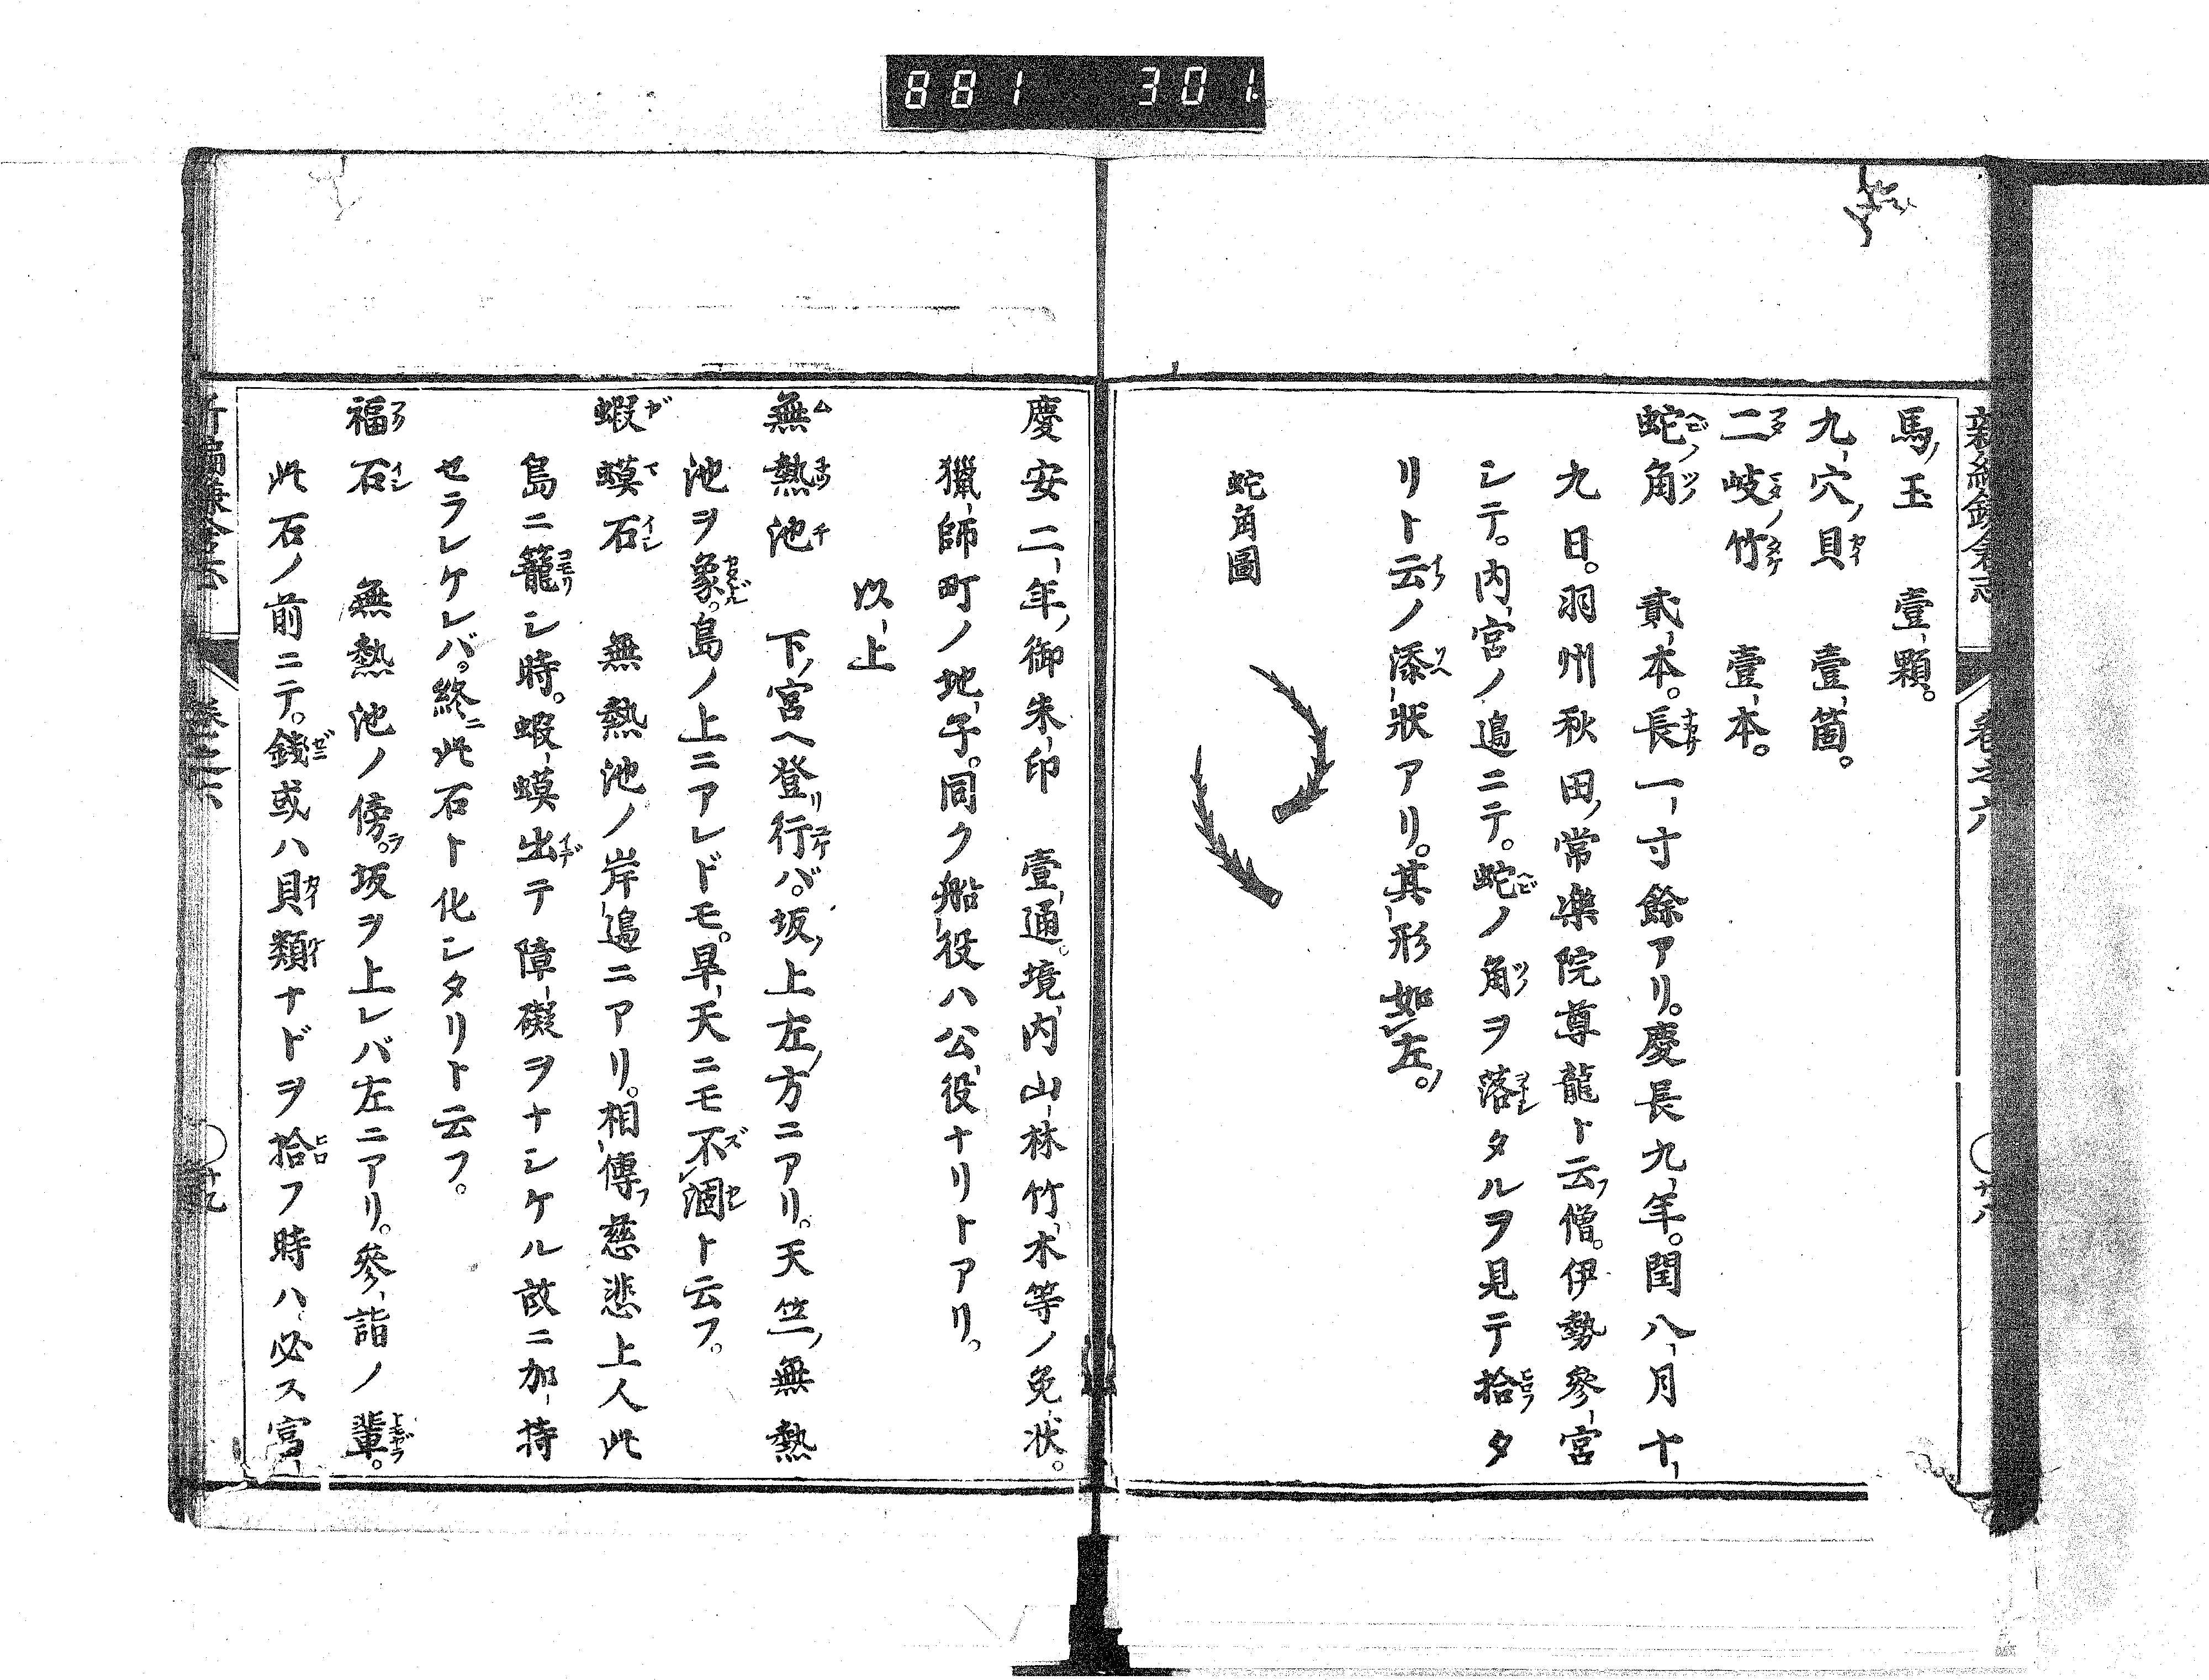 881 301
新編鎌倉志 卷之六 廿八
馬ノ玉 壹顆。
九穴ノ貝 壹箇。
二岐竹 壹本。
蛇角 貳本。長一寸餘アリ。慶長九年。閏八月十
九日。羽州秋田ノ常樂院尊龍ト云フ僧。伊勢參宮
シテ。内宮ノ邉ニテ。蛇ノ角ヲ落タルヲ見テ拾タ
リト云ノ添狀アリ。其形如左。
蛇角圖
慶安二年ノ御朱印 壹通。境内山林竹木等ノ免狀。
獵師町ノ地子。同ク船役ハ公役ナリトアリ。
以上
無熱池 下ノ宮ヘ登リ行バ。坂ノ上左ノ方ニアリ。天竺ノ無熱
池ヲ象。島ノ上ニアレドモ。旱天ニモ不涸ト云フ。
蝦蟆石 無熱池ノ岸邉ニアリ。相傳フ慈悲上人此
島ニ籠シ時。蝦蟆出テ障礙ヲナシケル故ニ加持
セラレケレバ。終ニ此石ト化シタリト云フ。
福石 無熱池ノ傍ラ。坂ヲ上レバ左ニアリ。參詣ノ輩。
此石ノ前ニテ。錢或ハ貝類ナドヲ拾フ時ハ。必ス富
新編鎌倉志 卷之六 廿九